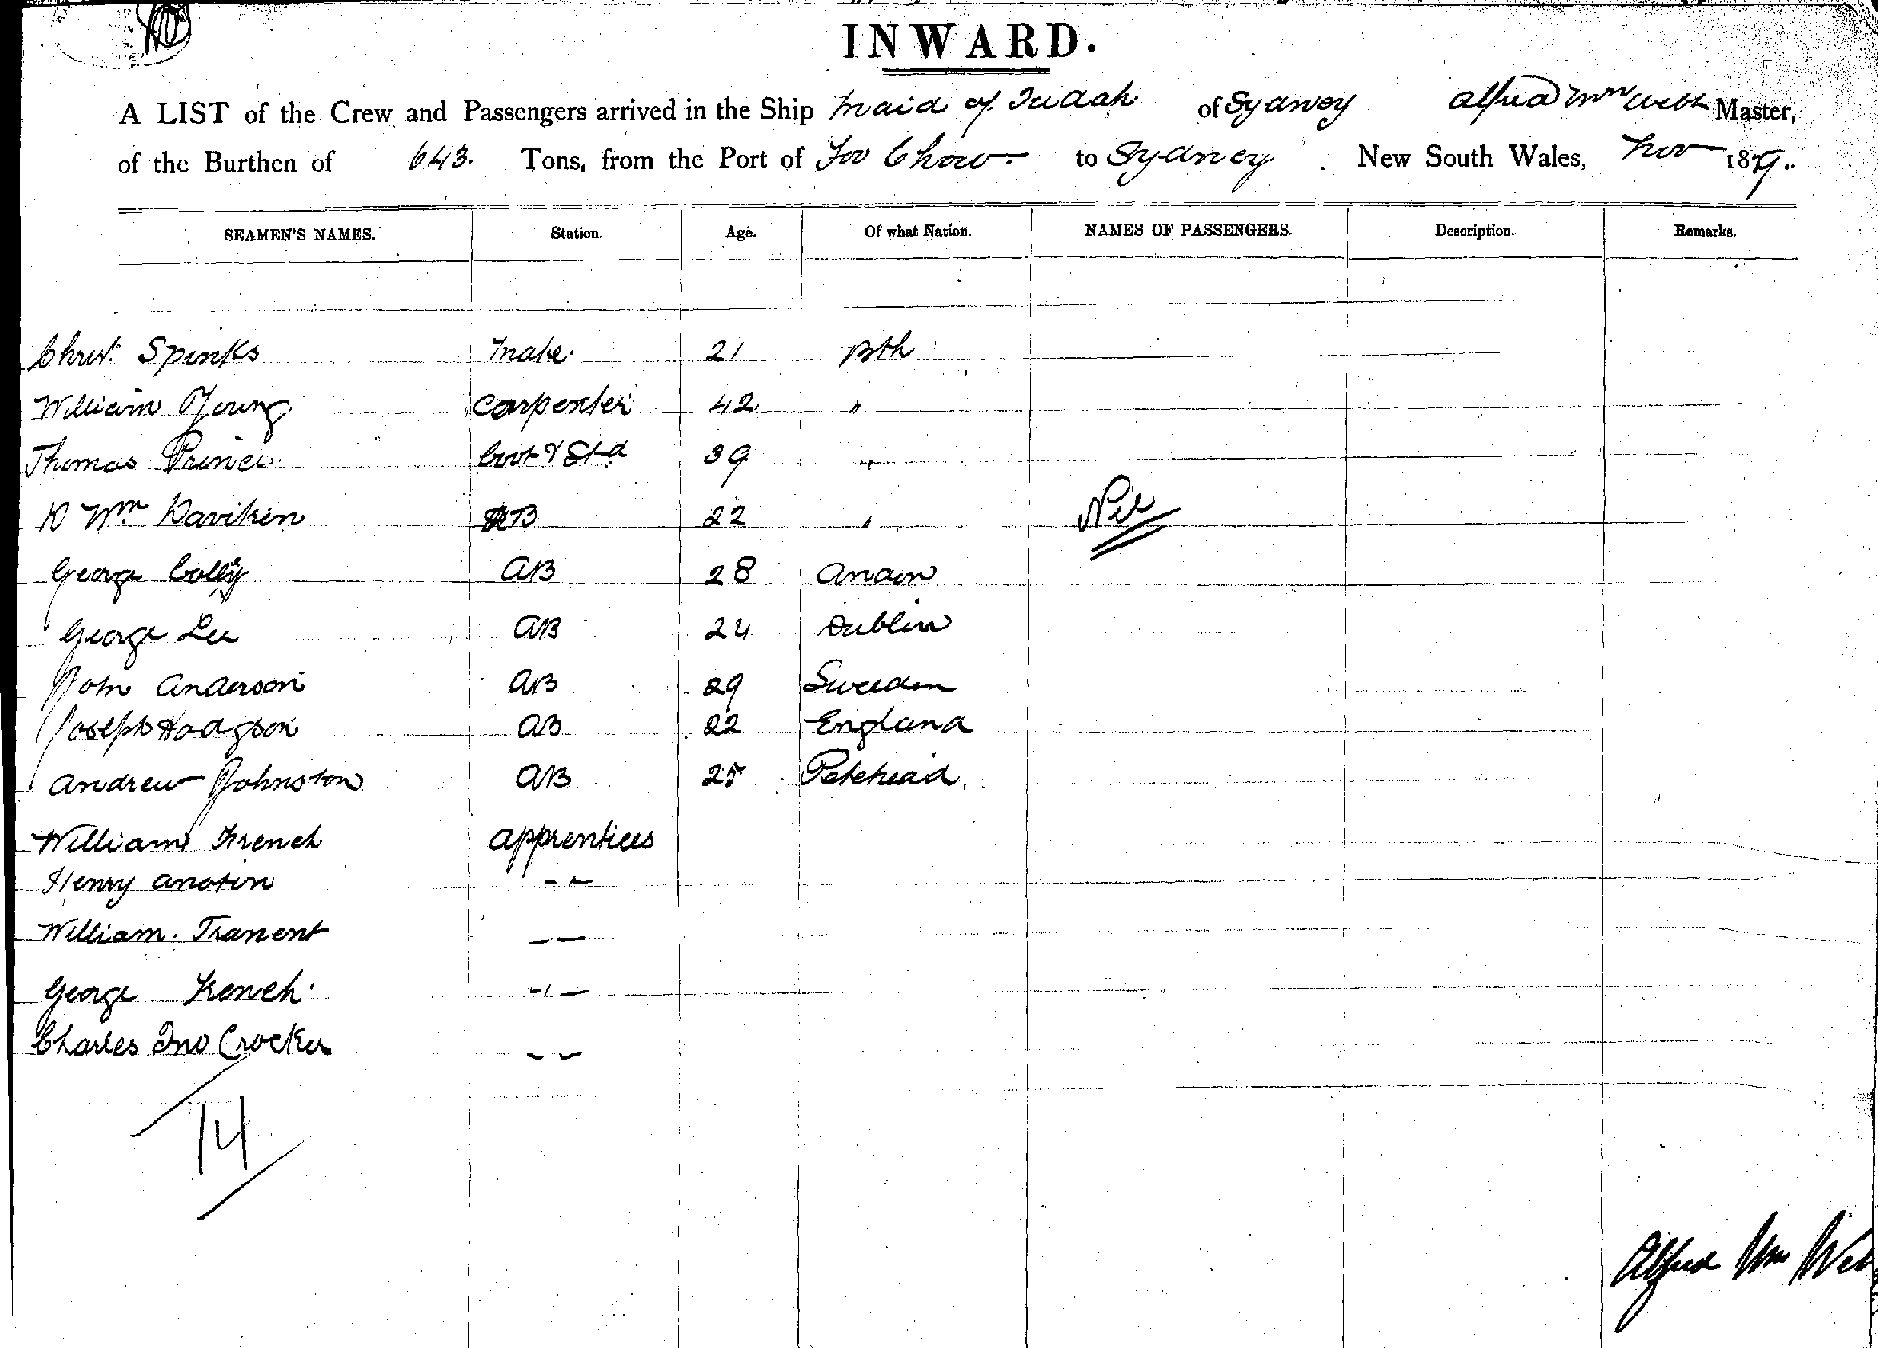 INWARD.
A LIST of the Crew and Passengers arrived in the Ship Maid of Judah of Sydney Alfred Wm Webb Master,
of the Burthen of 643. Tons, from the Port of Foo Chow to Sydney. New South Wales, Nov 1879.
SEAMEN'S NAMES. Station. Age. Of what Nation. NAMES OF PASSENGERS. Description. Remarks.
Christ. Spinks Mate. 21 Bth
William Young Carpenter 42 "
Thomas Prince Cook & Std 39 "
D Wm 22 " Nil
George AB 28
George Lee AB 24 Dublin
John Anderson AB 29 Sweden
Joseph Hodgson AB 22 England
Andrew Johnston AB 27 Peterhead
William French Apprentices
Henry - -
William. Tranent - -
George French. - -
Charles Jno Crocker - -
14
Alfred Wm Webb